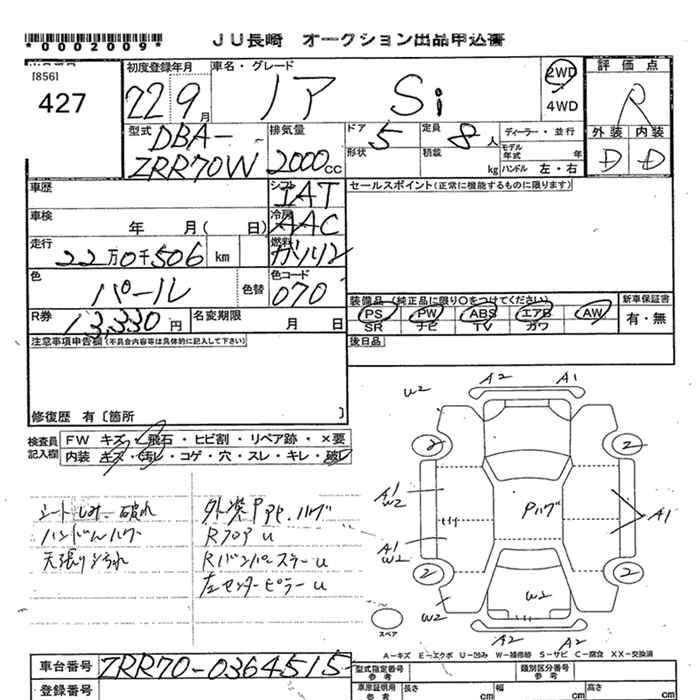 *0002009*
JU長崎 オークション出品申込書
[856]
427
初度登録年月
22年 9月
車名・グレード
ノア Si
2WD
4WD
評価点
R
外装 内装
D D
型式
DBA-
ZRR70W
排気量
2000cc
ドア 5
形状
定員 8人
積載 kg
ディーラー・並行
モデル年式 年
ハンドル 左・右
車歴
シフト
IAT
セールスポイント(正常に機能するものに限ります)
車検 年 月( 日)
冷房
AAC
走行
22万0千506 km
燃料
ガソリン
色
パール
色替
色コード
070
装備品(純正品に限り○をつけてください)
PS PW ABS エアB AW
SR ナビ TV カワ
新車保証書
有・無
R券
13,330円
名変期限 月 日
後日品
注意事項申告欄(不具合内容等は具体的に記入して下さい)
修復歴 有〔箇所 〕
検査員
記入欄
FW キズ・飛石・ヒビ割・リペア跡・×要
内装 キズ・汚レ・コゲ・穴・スレ・キレ・破レ
シートしみ、破れ
ハンドルハゲ
天張りよごれ
Rフロア u
RバンパーステーU
左センターピラーu
A2 A1
W2
2 2
A1
W2
Pハゲ
A1
A1
W2
2 2
W2
W2
A2 A2
スペア
A-キズ E-エクボ U-凹み W-補修跡 S-サビ C-腐食 XX-交換済
車台番号
ZRR70-0364515
登録番号
型式指定番号
参考
類別区分番号
参考
車庫証明用
参考
長さ cm
幅 cm
高さ cm